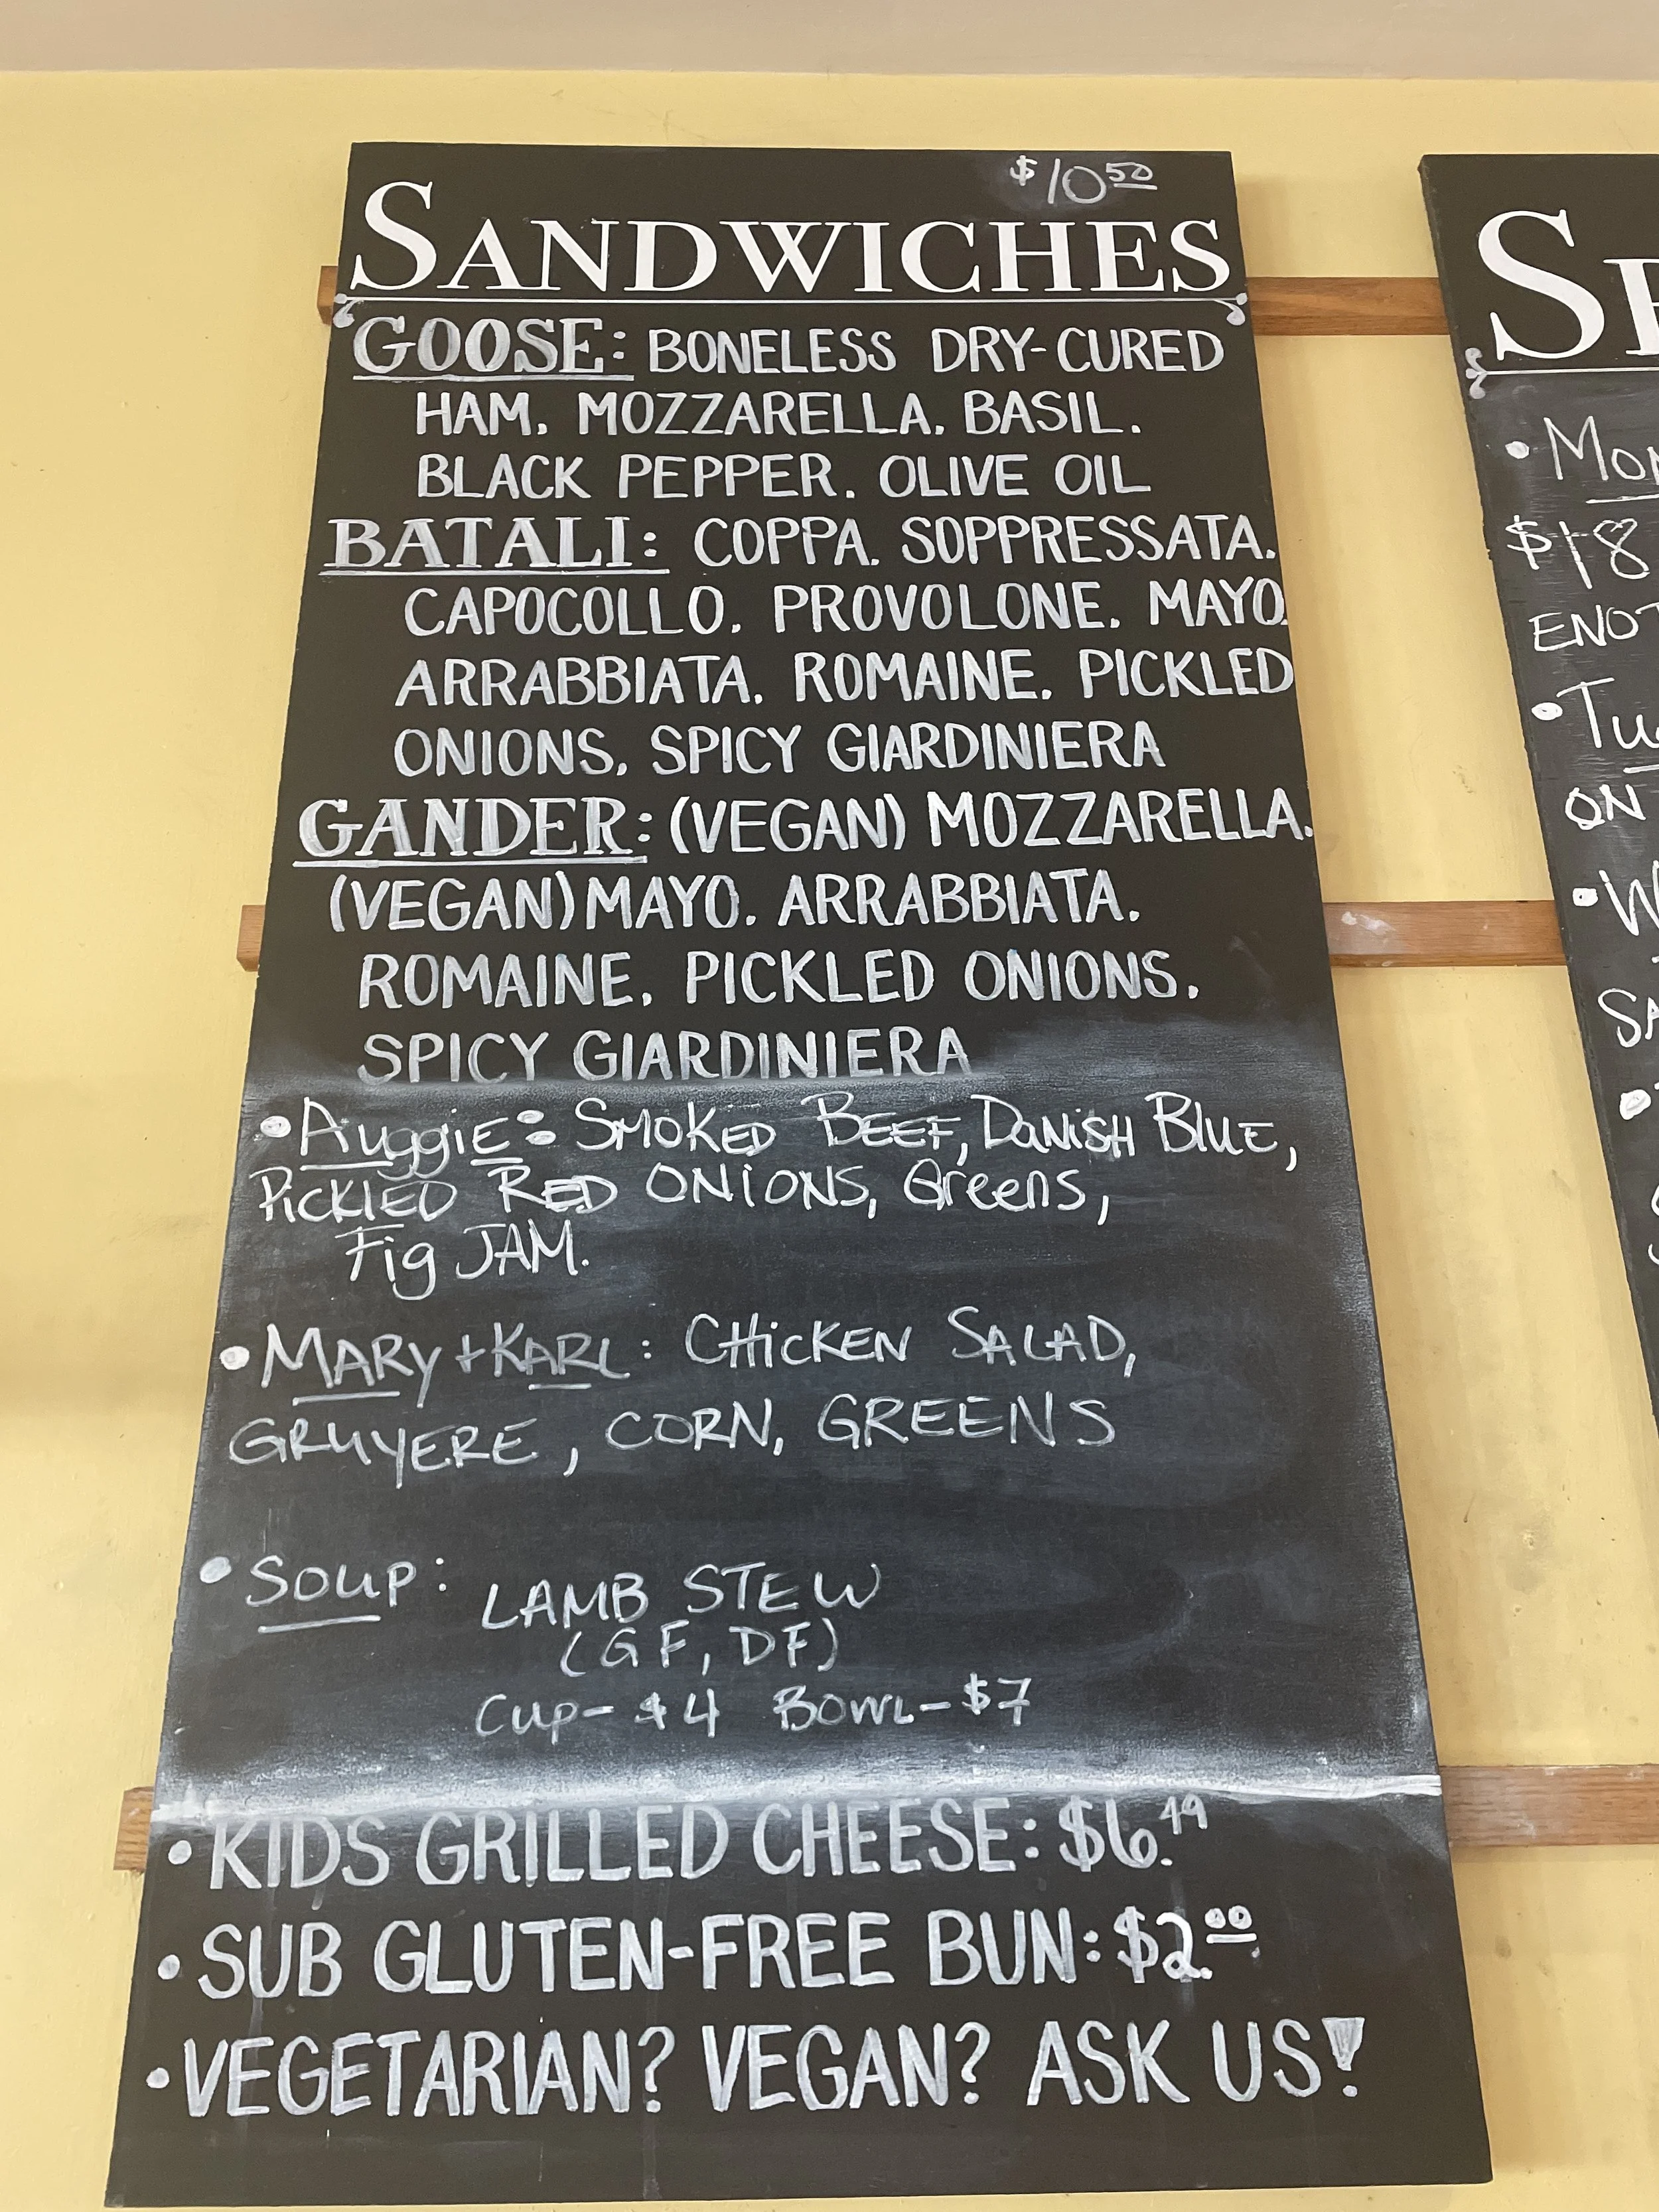 $10.50
SANDWICHES
GOOSE: BONELESS DRY-CURED
HAM. MOZZARELLA. BASIL.
BLACK PEPPER. OLIVE OIL
BATALI: COPPA. SOPPRESSATA.
CAPOCOLLO. PROVOLONE. MAYO.
ARRABBIATA. ROMAINE. PICKLED
ONIONS. SPICY GIARDINIERA
GANDER: (VEGAN) MOZZARELLA.
(VEGAN) MAYO. ARRABBIATA.
ROMAINE. PICKLED ONIONS.
SPICY GIARDINIERA
• Auggie: Smoked Beef, Danish Blue,
Pickled Red Onions, Greens,
Fig JAM.
• MARY + KARL: CHICKEN SALAD,
GRUYERE, CORN, GREENS
• Soup: LAMB STEW
(GF, DF)
Cup- $4 Bowl- $7
• KIDS GRILLED CHEESE: $6.49
• SUB GLUTEN-FREE BUN: $2.00
• VEGETARIAN? VEGAN? ASK US!
$18
ON